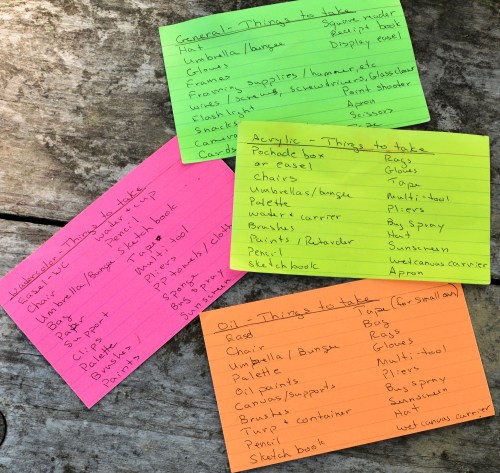 General - Things to take
Hat
Umbrella/bungee
Gloves
Frames
Framing supplies/hammer, etc
wires/screws, screwdrivers, Glass cleaner
Flashlight
Snacks
Camera
Cards
Square reader
Receipt book
Display easel
Point shooter
Apron
Scissors
Tape
Acrylic - Things to take
Pochade box
or easel
Chairs
Umbrellas/bungee
Palette
water + carrier
Brushes
Paints/Retarder
Pencil
Sketchbook
Rags
Gloves
Tape
Multi-tool
Pliers
Bug spray
Hat
Sunscreen
wet canvas carrier
Apron
Watercolor - Things to take
Easel - WC
Chair
Umbrella/Bungee
Bag
Paper
Support
Clips
Palette
Brushes/
Paints
water + cup
Pencil
Sketch book
Tape
Multi-tool
Pliers
PP towels/cloth
Sponge
Bug spray
Sunscreen
Oil - Things to take
Easel
Chair
Umbrella/Bungee
Palette
Oil paints
Canvas/supports
Brushes
Turp + container
Pencil
Sketch book
Tape (for small ones)
Bag
Rags
Gloves
Multi-tool
Pliers
Bug spray
Sunscreen
Hat
wet canvas carrier